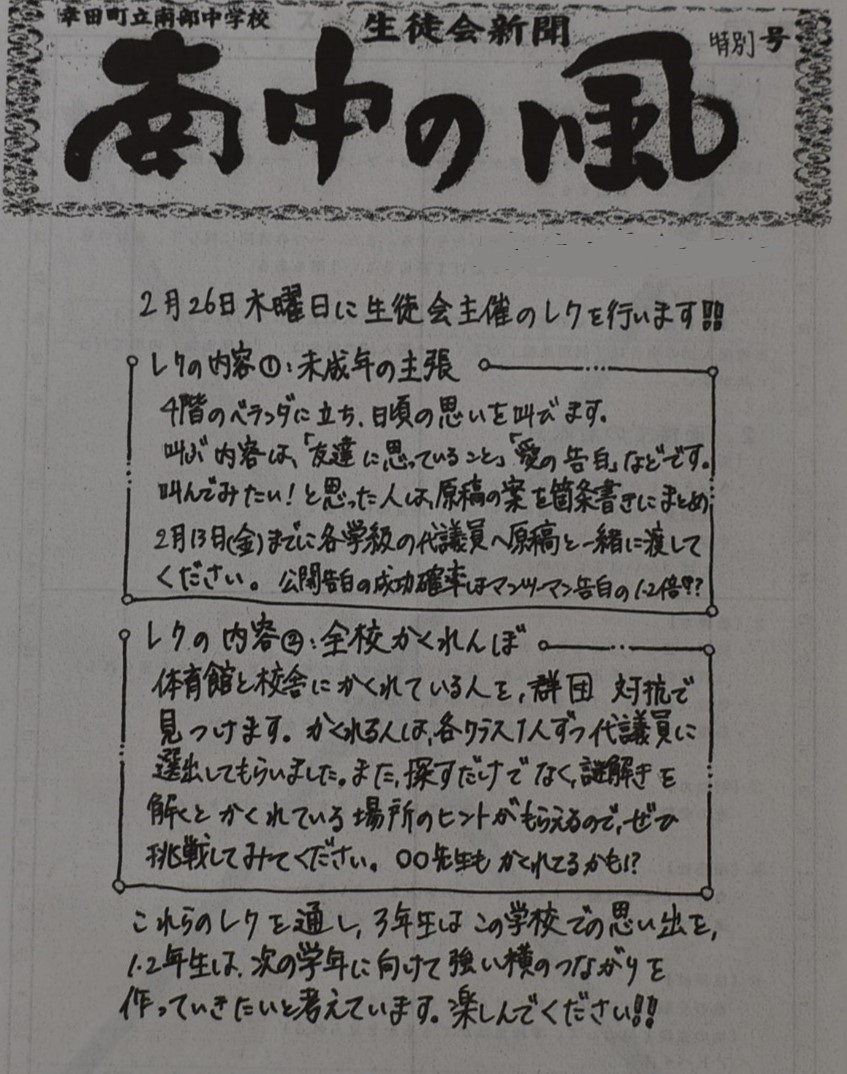 幸田町立南部中学校
生徒会新聞
特別号
南中の風
2月26日木曜日に生徒会主催のレクを行います!!
レクの内容①:未成年の主張
4階のベランダに立ち、日頃の思いを叫びます。
叫ぶ内容は、「友達に思っていること」「愛の告白」などです。
叫んでみたい!と思った人は、原稿の案を箇条書きにまとめ
2月13日(金)までに各学級の代議員へ原稿と一緒に渡して
ください。公開告白の成功確率はマンツーマン告白の1.2倍!?
レクの内容②:全校かくれんぼ
体育館と校舎にかくれている人を、群団 対抗で
見つけます。かくれる人は、各クラス1人ずつ代議員に
選出してもらいました。また、探すだけでなく、謎解きを
解くとかくれている場所のヒントがもらえるので、ぜひ
挑戦してみてください。〇〇先生もかくれてるかも!?
これらのレクを通し、3年生はこの学校での思い出を、
1.2年生は、次の学年に向けて強い横のつながりを
作っていきたいと考えています。楽しんでください!!